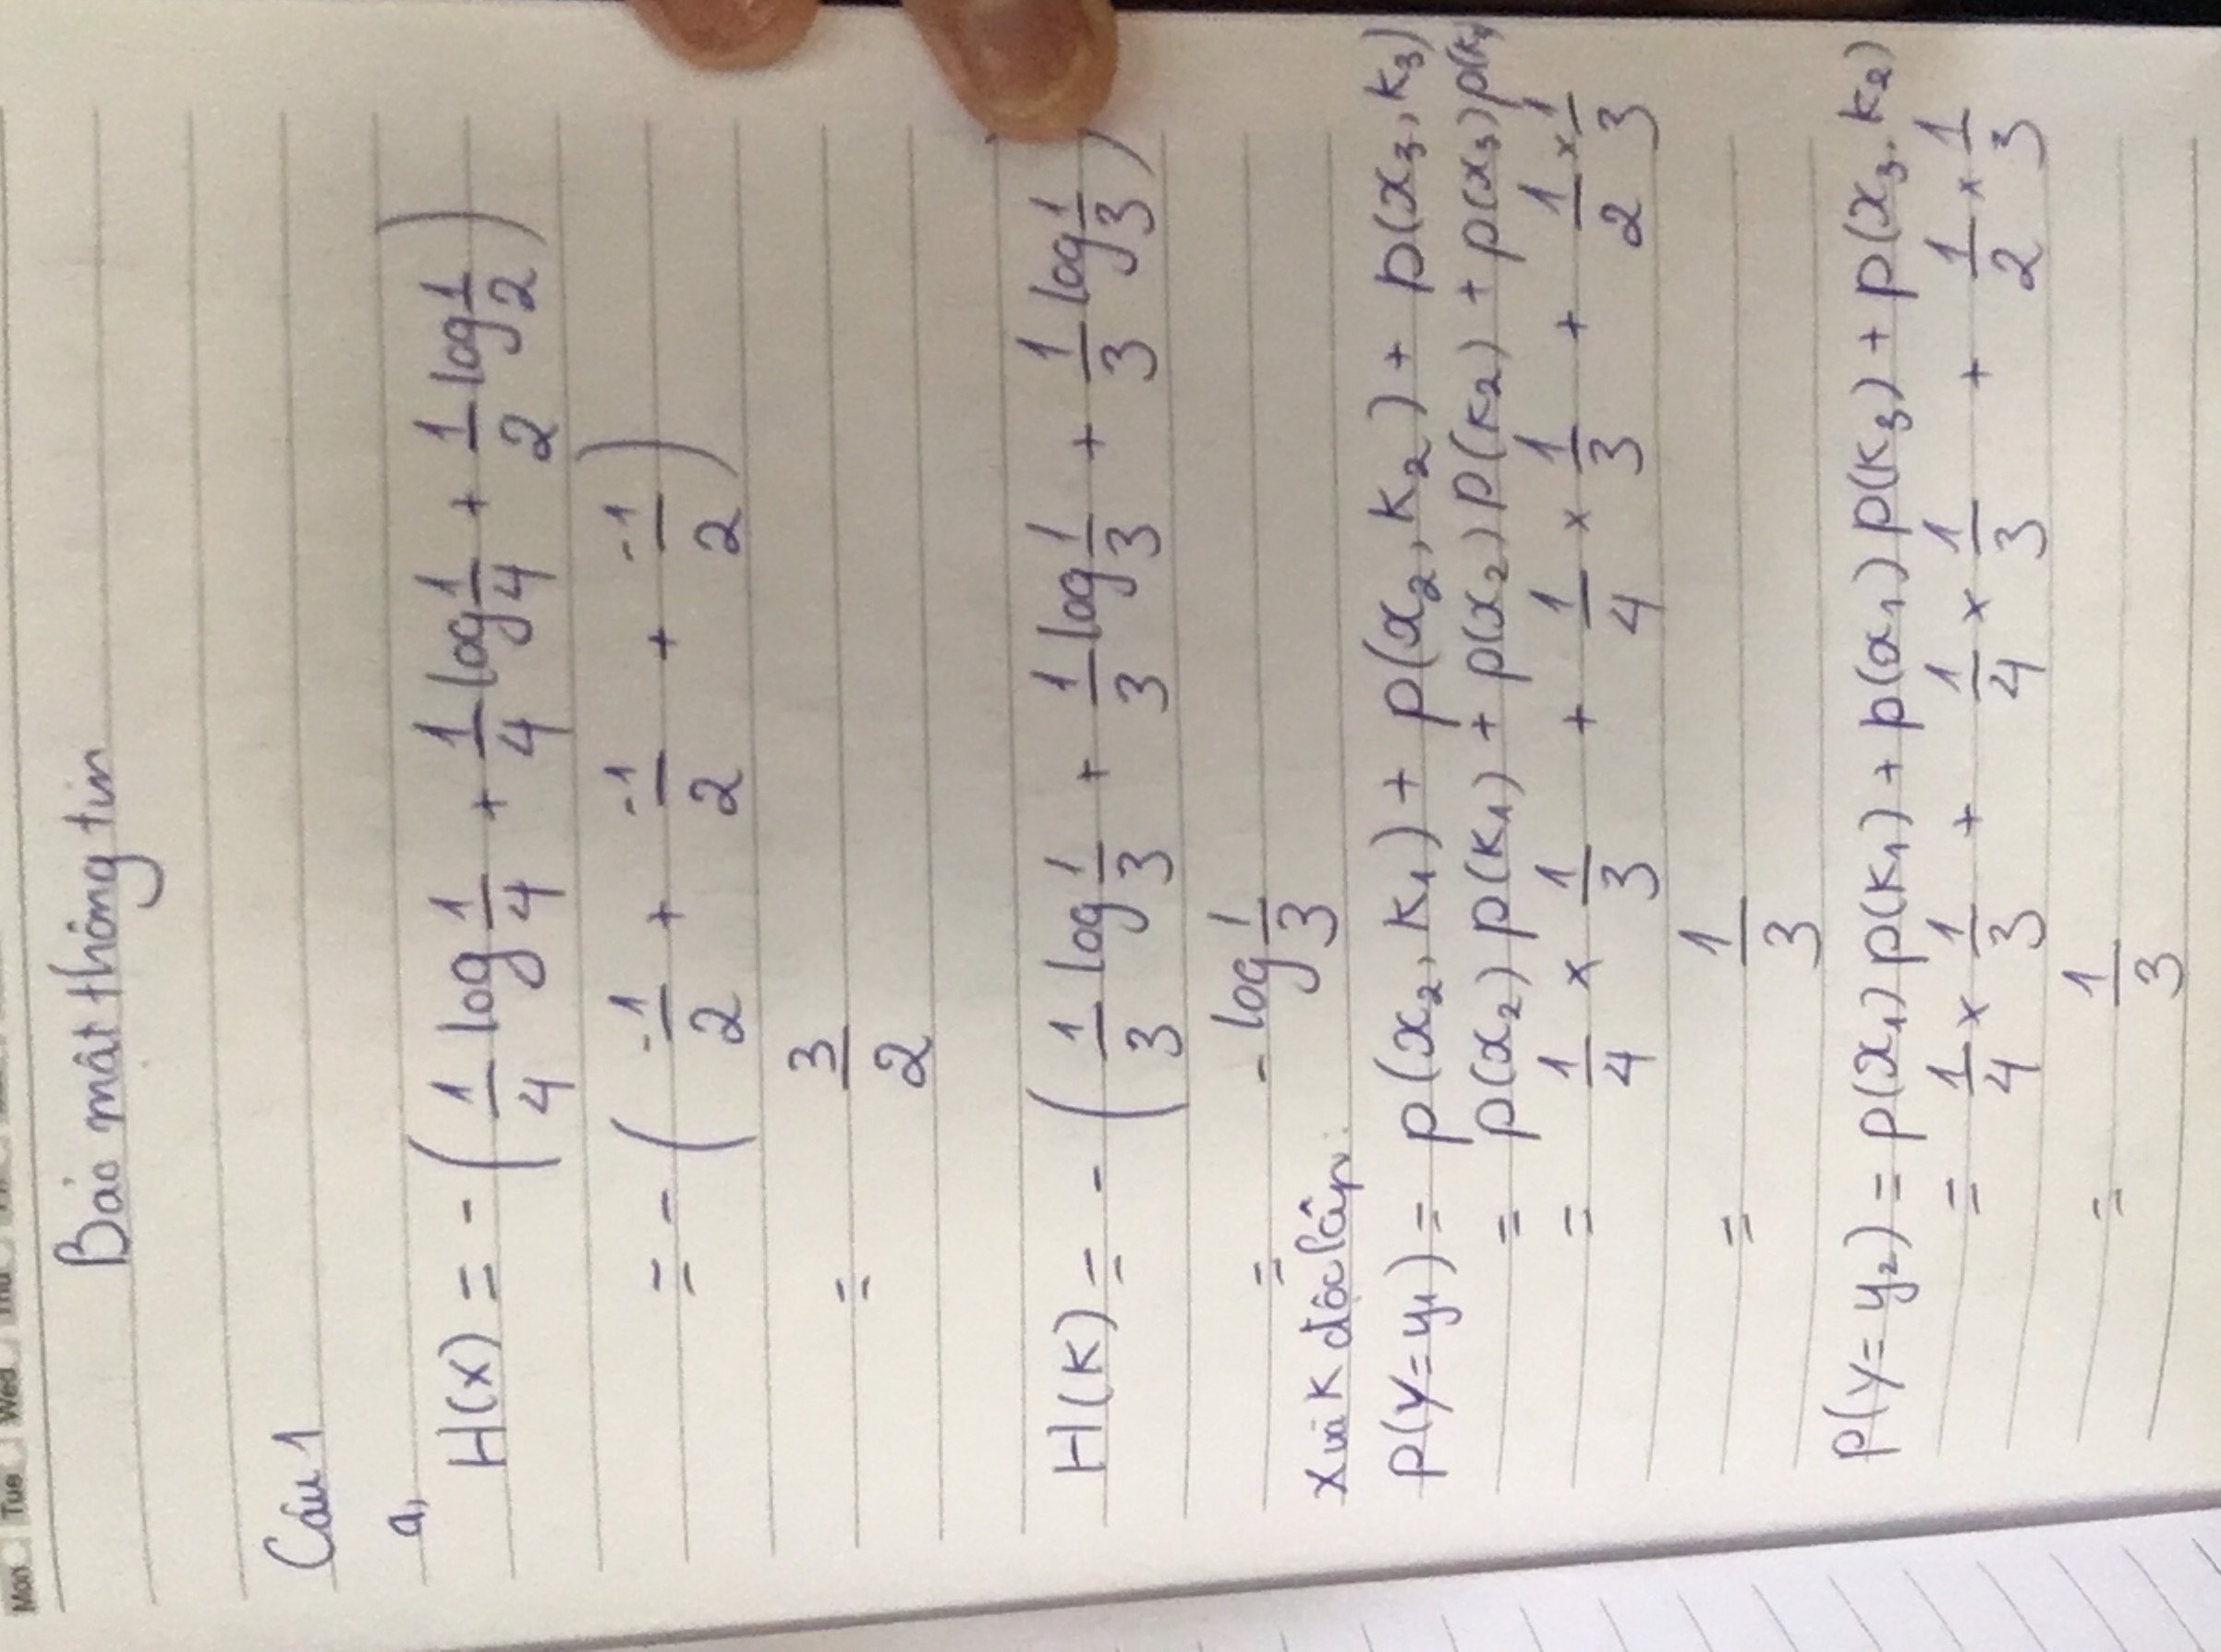 Mon Tue Wed Thu
Bảo mật thông tin
Câu 1
a,
H(X) = - ( 1/4 log 1/4 + 1/4 log 1/4 + 1/2 log 1/2 )
= - ( -1/2 + -1/2 + -1/2 )
= 3/2
H(K) = - ( 1/3 log 1/3 + 1/3 log 1/3 + 1/3 log 1/3 )
= - log 1/3
X và K độc lập:
p(y=y₁) = p(x₂, k₁) + p(x₂, k₂) + p(x₃, k₃)
= p(x₂) p(k₁) + p(x₂) p(k₂) + p(x₃) p(k
= 1/4 × 1/3 + 1/4 × 1/3 + 1/2 × 1/3
= 1/3
p(y=y₂) = p(x₁) p(k₁) + p(x₁) p(k₃) + p(x₃, k₂)
= 1/4 × 1/3 + 1/4 × 1/3 + 1/2 × 1/3
= 1/3